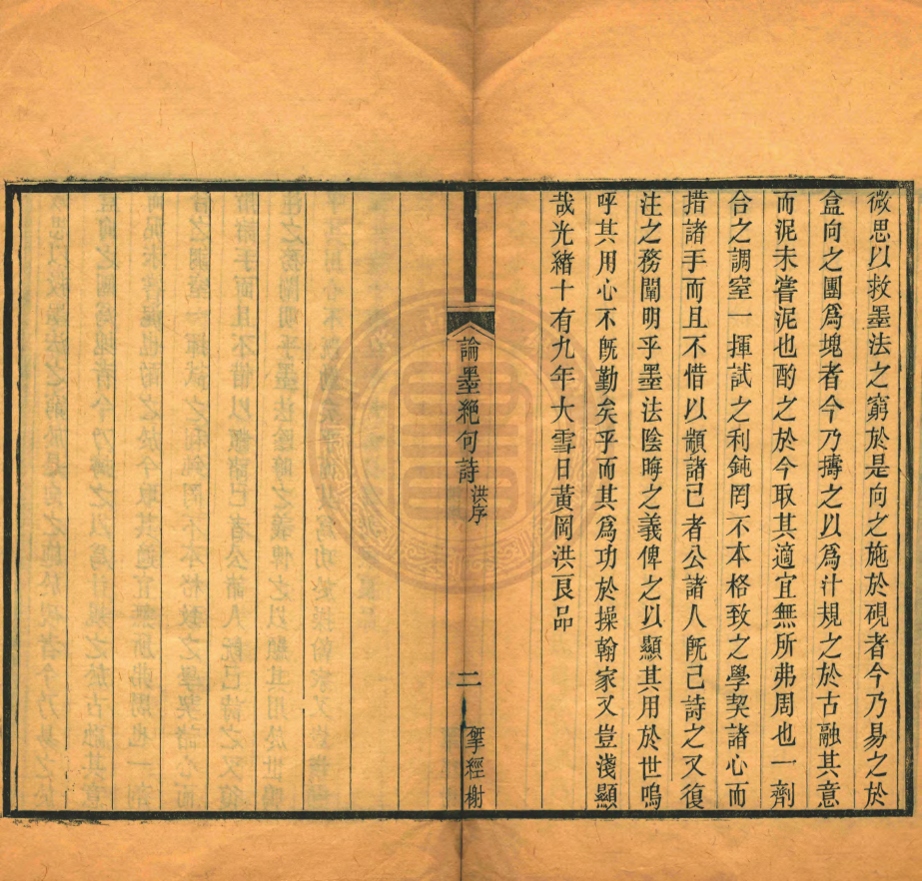 微思以救墨法之窮於是向之施於硯者今乃昜之於
盒向之團爲塊者今乃擣之以爲汁規之於古融其意
而泥未嘗泥也酌之於今取其適宜無所弗周也一劑
合之調窒一揮試之利鈍罔不本格致之學契諸心而
措諸手而且不惜以顓諸己者公諸人旣已詩之又復
注之務闡明乎墨法陰晦之義俾之以顯其用於世嗚
呼其用心不旣勤矣乎而其爲功於操翰家又豈淺顯
哉光緒十有九年大雪日黃岡洪良品
論墨絕句詩 洪序
二
揅經榭